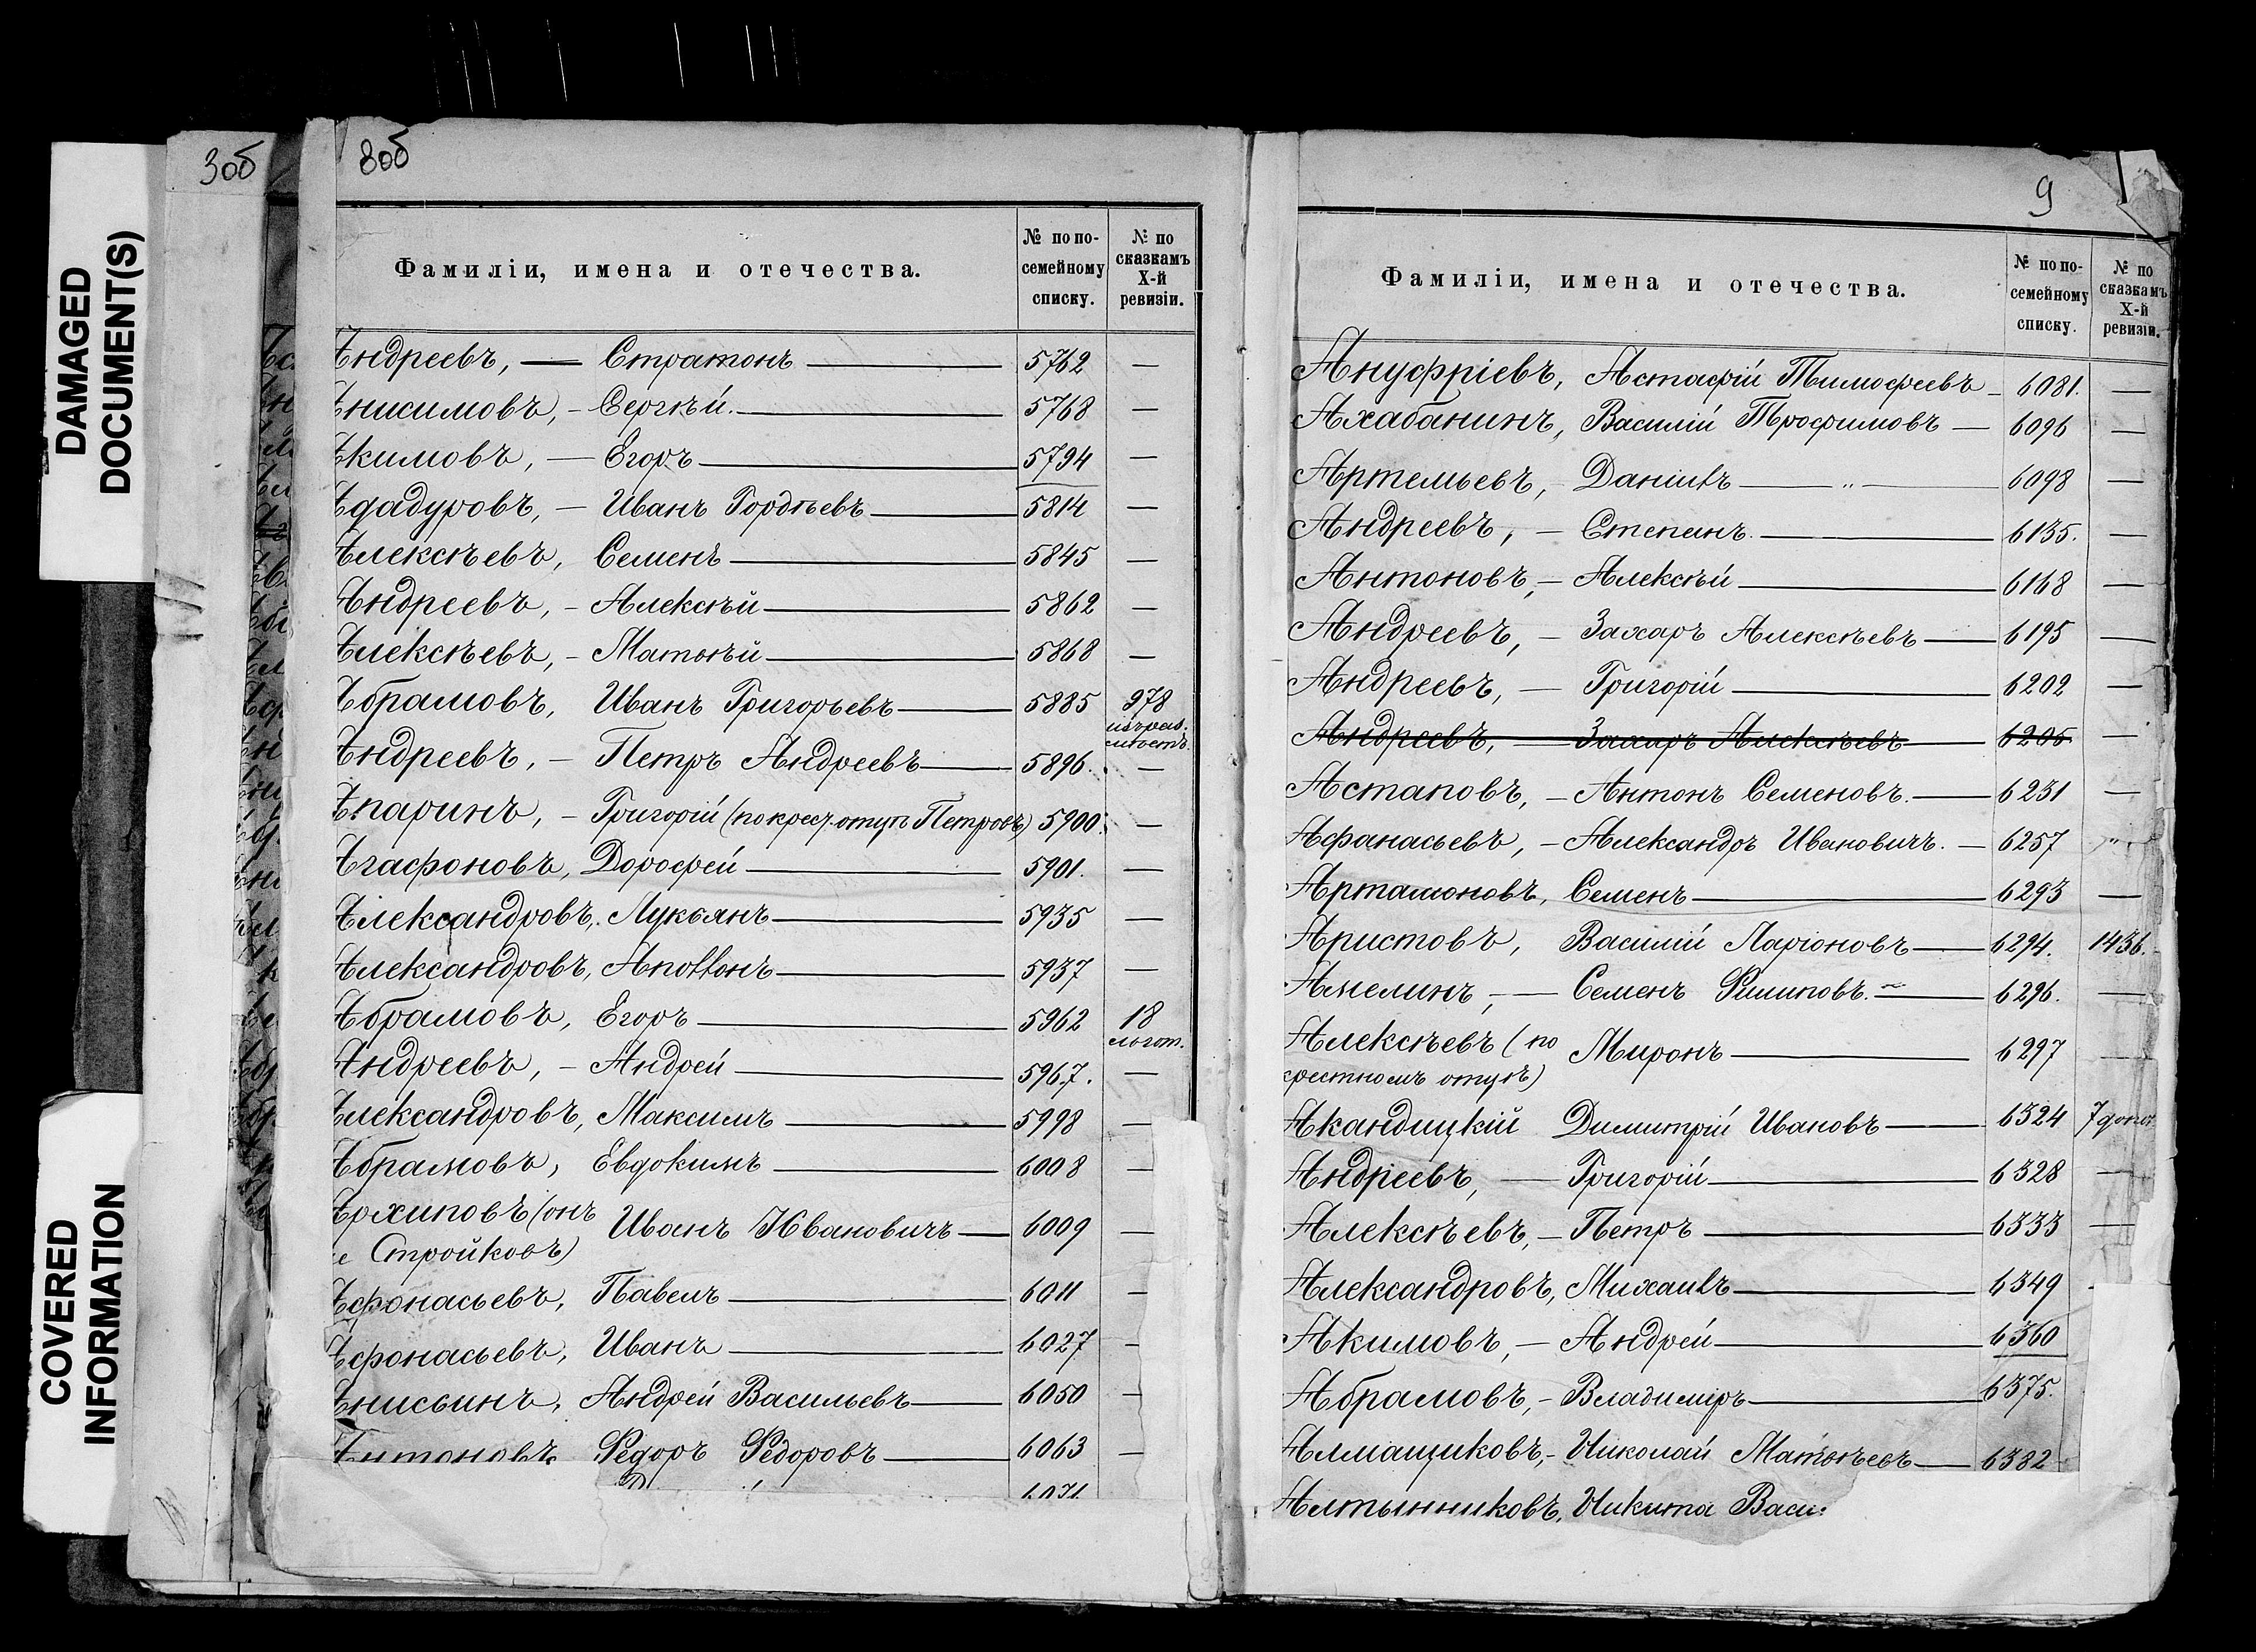 DAMAGED
DOCUMENT(S)
COVERED
INFORMATION
3об
8об
Фамиліи, имена и отечества.
№ по по-
семейному
списку.
№ по
сказкамъ
X-й
ревизіи.
Андреевъ, — Стратонъ — 5762 —
Анисимовъ, - Сергѣй. — 5768 —
Акимовъ, — Егоръ — 5794 —
Ададуровъ, — Иванъ Гордѣевъ — 5814 —
Алексѣевъ, Семенъ — 5845 —
Андреевъ, - Алексѣй — 5862 —
Алексѣевъ, - Матвѣй — 5868 —
Абрамовъ, Иванъ Григорьевъ — 5885 978
Андреевъ, - Петръ Андреевъ — 5896. —
Апаринъ, - Григорій (по крест. отцу Петровъ) 5900. —
Агафоновъ, Дорофей — 5901. —
Александровъ, Лукьянъ — 5935 —
Александровъ, Аполлонъ — 5937 —
Абрамовъ, Егоръ — 5962 18
льгот.
Андреевъ, - Андрей — 5967. —
Александровъ, Максимъ — 5998 —
Абрамовъ, Евдокимъ — 6008 —
Архиповъ (онъ
е Стройковъ) Иванъ Ивановичъ — 6009 —
Афонасьевъ, Павелъ — 6011 —
Афонасьевъ, Иванъ — 6027 —
Анисьинъ, Андрей Васильевъ — 6050 —
Антоновъ Ѳедоръ Ѳедоровъ — 6063 —
6071
9
Фамиліи, имена и отечества.
№ по по-
семейному
списку.
№ по
сказкамъ
X-й
ревизіи.
Ануфріевъ, Астафій Тимофеевъ - 6081. —
Ахабанинъ, Василій Трофимовъ — 6096 —
Артемьевъ, - Даніилъ — „ — 6098 —
Андреевъ, - Степанъ. — 6135. —
Антоновъ, - Алексѣй — 6168 —
Андреевъ, - Захаръ Алексѣевъ — 6195 —
Андреевъ, — Григорій — 6202 —
Андреевъ, — Захаръ Алексѣевъ — 6205 —
Астаповъ, - Антонъ Семеновъ. — 6231 —
Афанасьевъ, - Александръ Ивановичъ. — 6257 „
Артамоновъ, Семенъ — 6293 —
Аристовъ, Василій Ларіоновъ — 6294. 1436.
Амелинъ, — Семенъ Филиповъ. — 6296. —
Алексѣевъ (по
крестномъ отцѣ) Миронъ — 6297 —
Акандицкій Димитрій Ивановъ — 6324 7 допол
Андреевъ, — Григорій — 6328 —
Алексѣевъ, - Петръ — 6333 —
Александровъ, Михаилъ — 6349 -
Акимовъ, - Андрей — 6360
Абрамовъ, - Владиміръ — 6375.
Алмащиковъ, - Николай Матвѣевъ — 6382
Алтынниковъ, Никита Васи